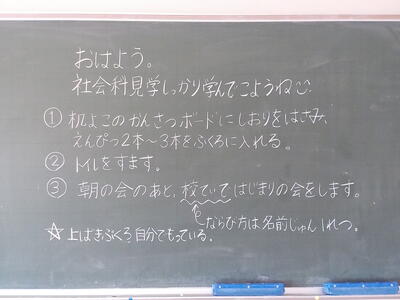 おはよう。
社会科見学しっかり学んでこようね☺
① 机よこのかんさつボードにしおりをはさみ、
えんぴつ2本〜3本をふくろに入れる。
② トイレをすます。
③ 朝の会のあと、校ていではじまりの会をします。
ならび方は名前じゅん1れつ。
☆上はきぶくろ、自分でもっている。